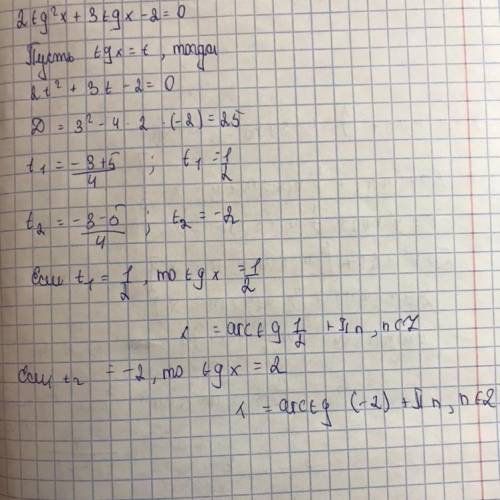 2tg²x + 3tgx - 2 = 0
Пусть tgx = t, тогда
2t² + 3t - 2 = 0
D = 3² - 4 · 2 · (-2) = 25
t₁ = (-3+5)/4 ; t₁ = 1/2
t₂ = (-3-5)/4 ; t₂ = -2
Если t₁ = 1/2, то tgx = 1/2
x = arctg 1/2 + πn, n∈Z
Если t₂ = -2, то tgx = 2
x = arctg (-2) + πn, n∈Z